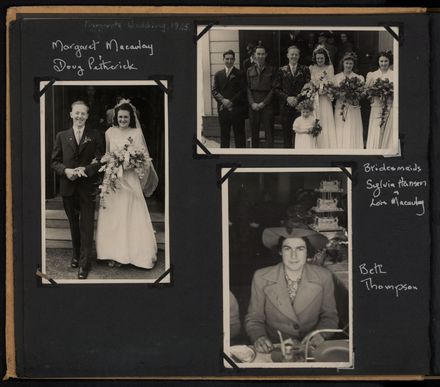 Margaret Wedding, 1945
Margaret Macaulay
Doug Petherick
Bridesmaids
Sylvia Hansen
+
Lois Macaulay
Beth
Thompson